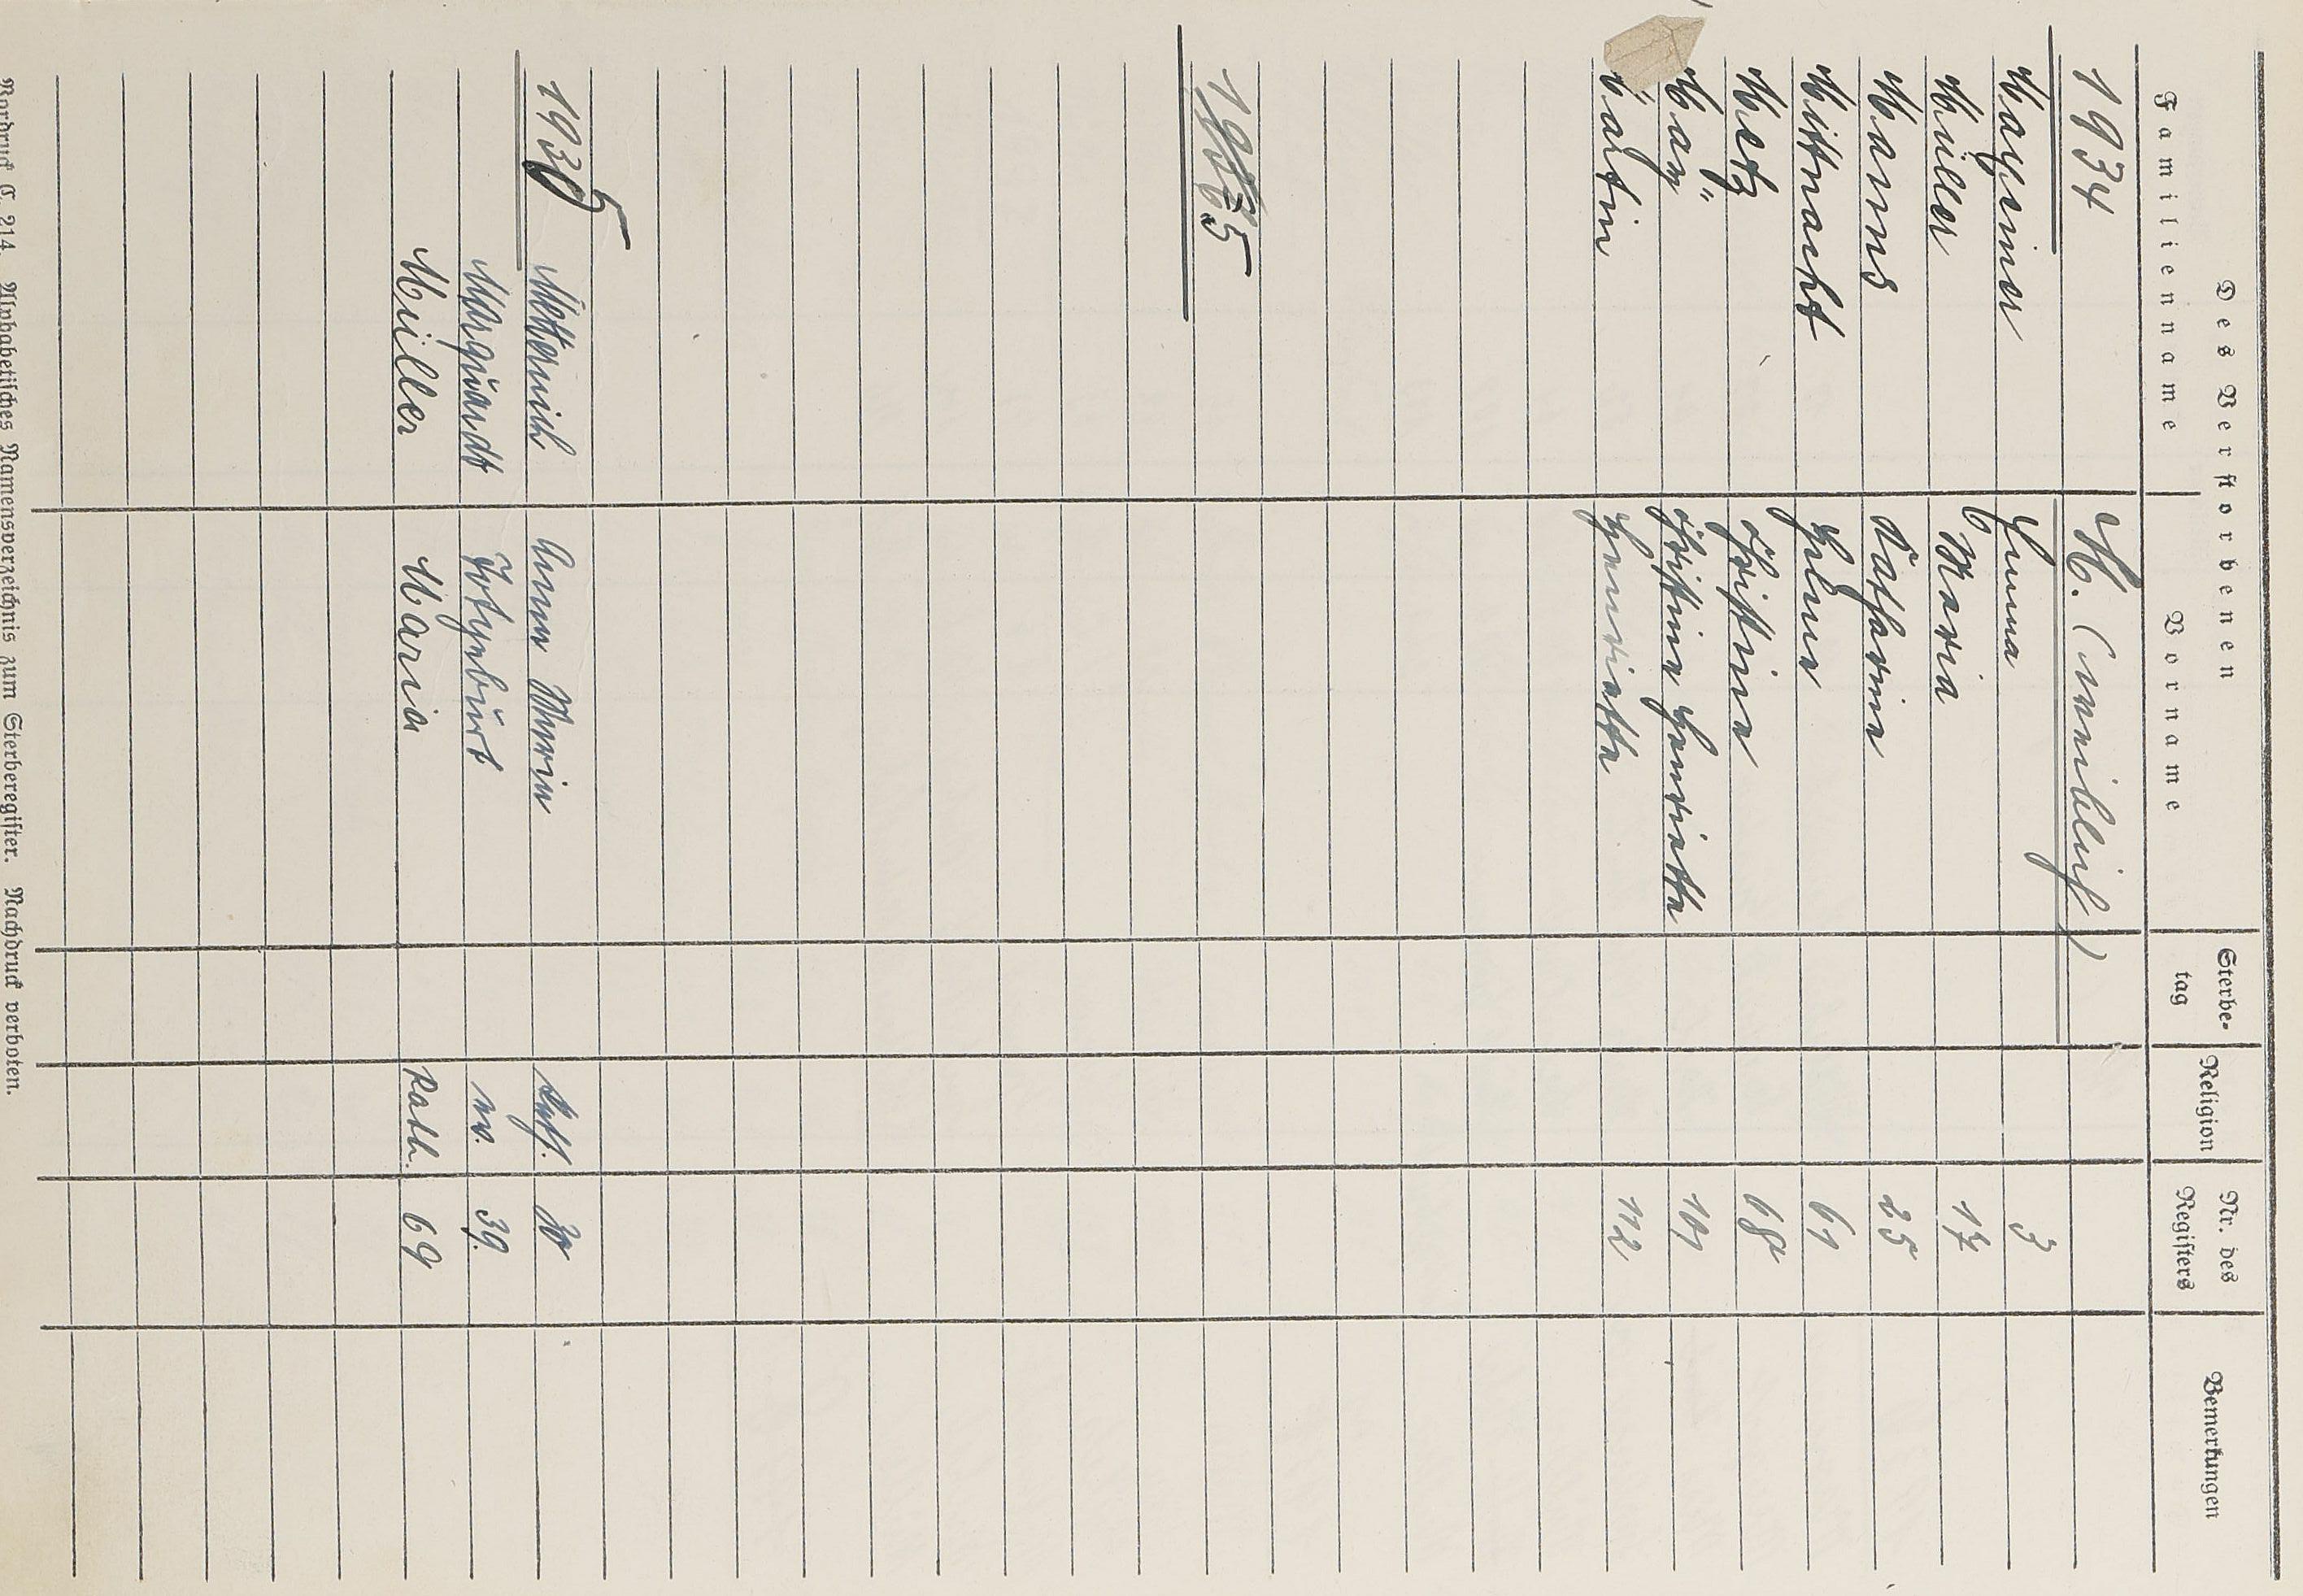 Des Verstorbenen
Familienname Vorname Sterbetag Religion Nr. des Registers Bemerkungen
1934 M. (weiblich)
Maximer Emma 3
Müller Maria 17
Manns Katharina 25
Mittnacht Helene 61
Metz Christine 68
May Christine Henriette 101
Martin Henriette 112
1935
1935 Metternich Anna Maria kath. 30
Marquardt Totgeburt ev. 39.
Müller Maria kath. 69
Vordruck C. 214. Alphabetisches Namensverzeichnis zum Sterberegister. Nachdruck verboten.